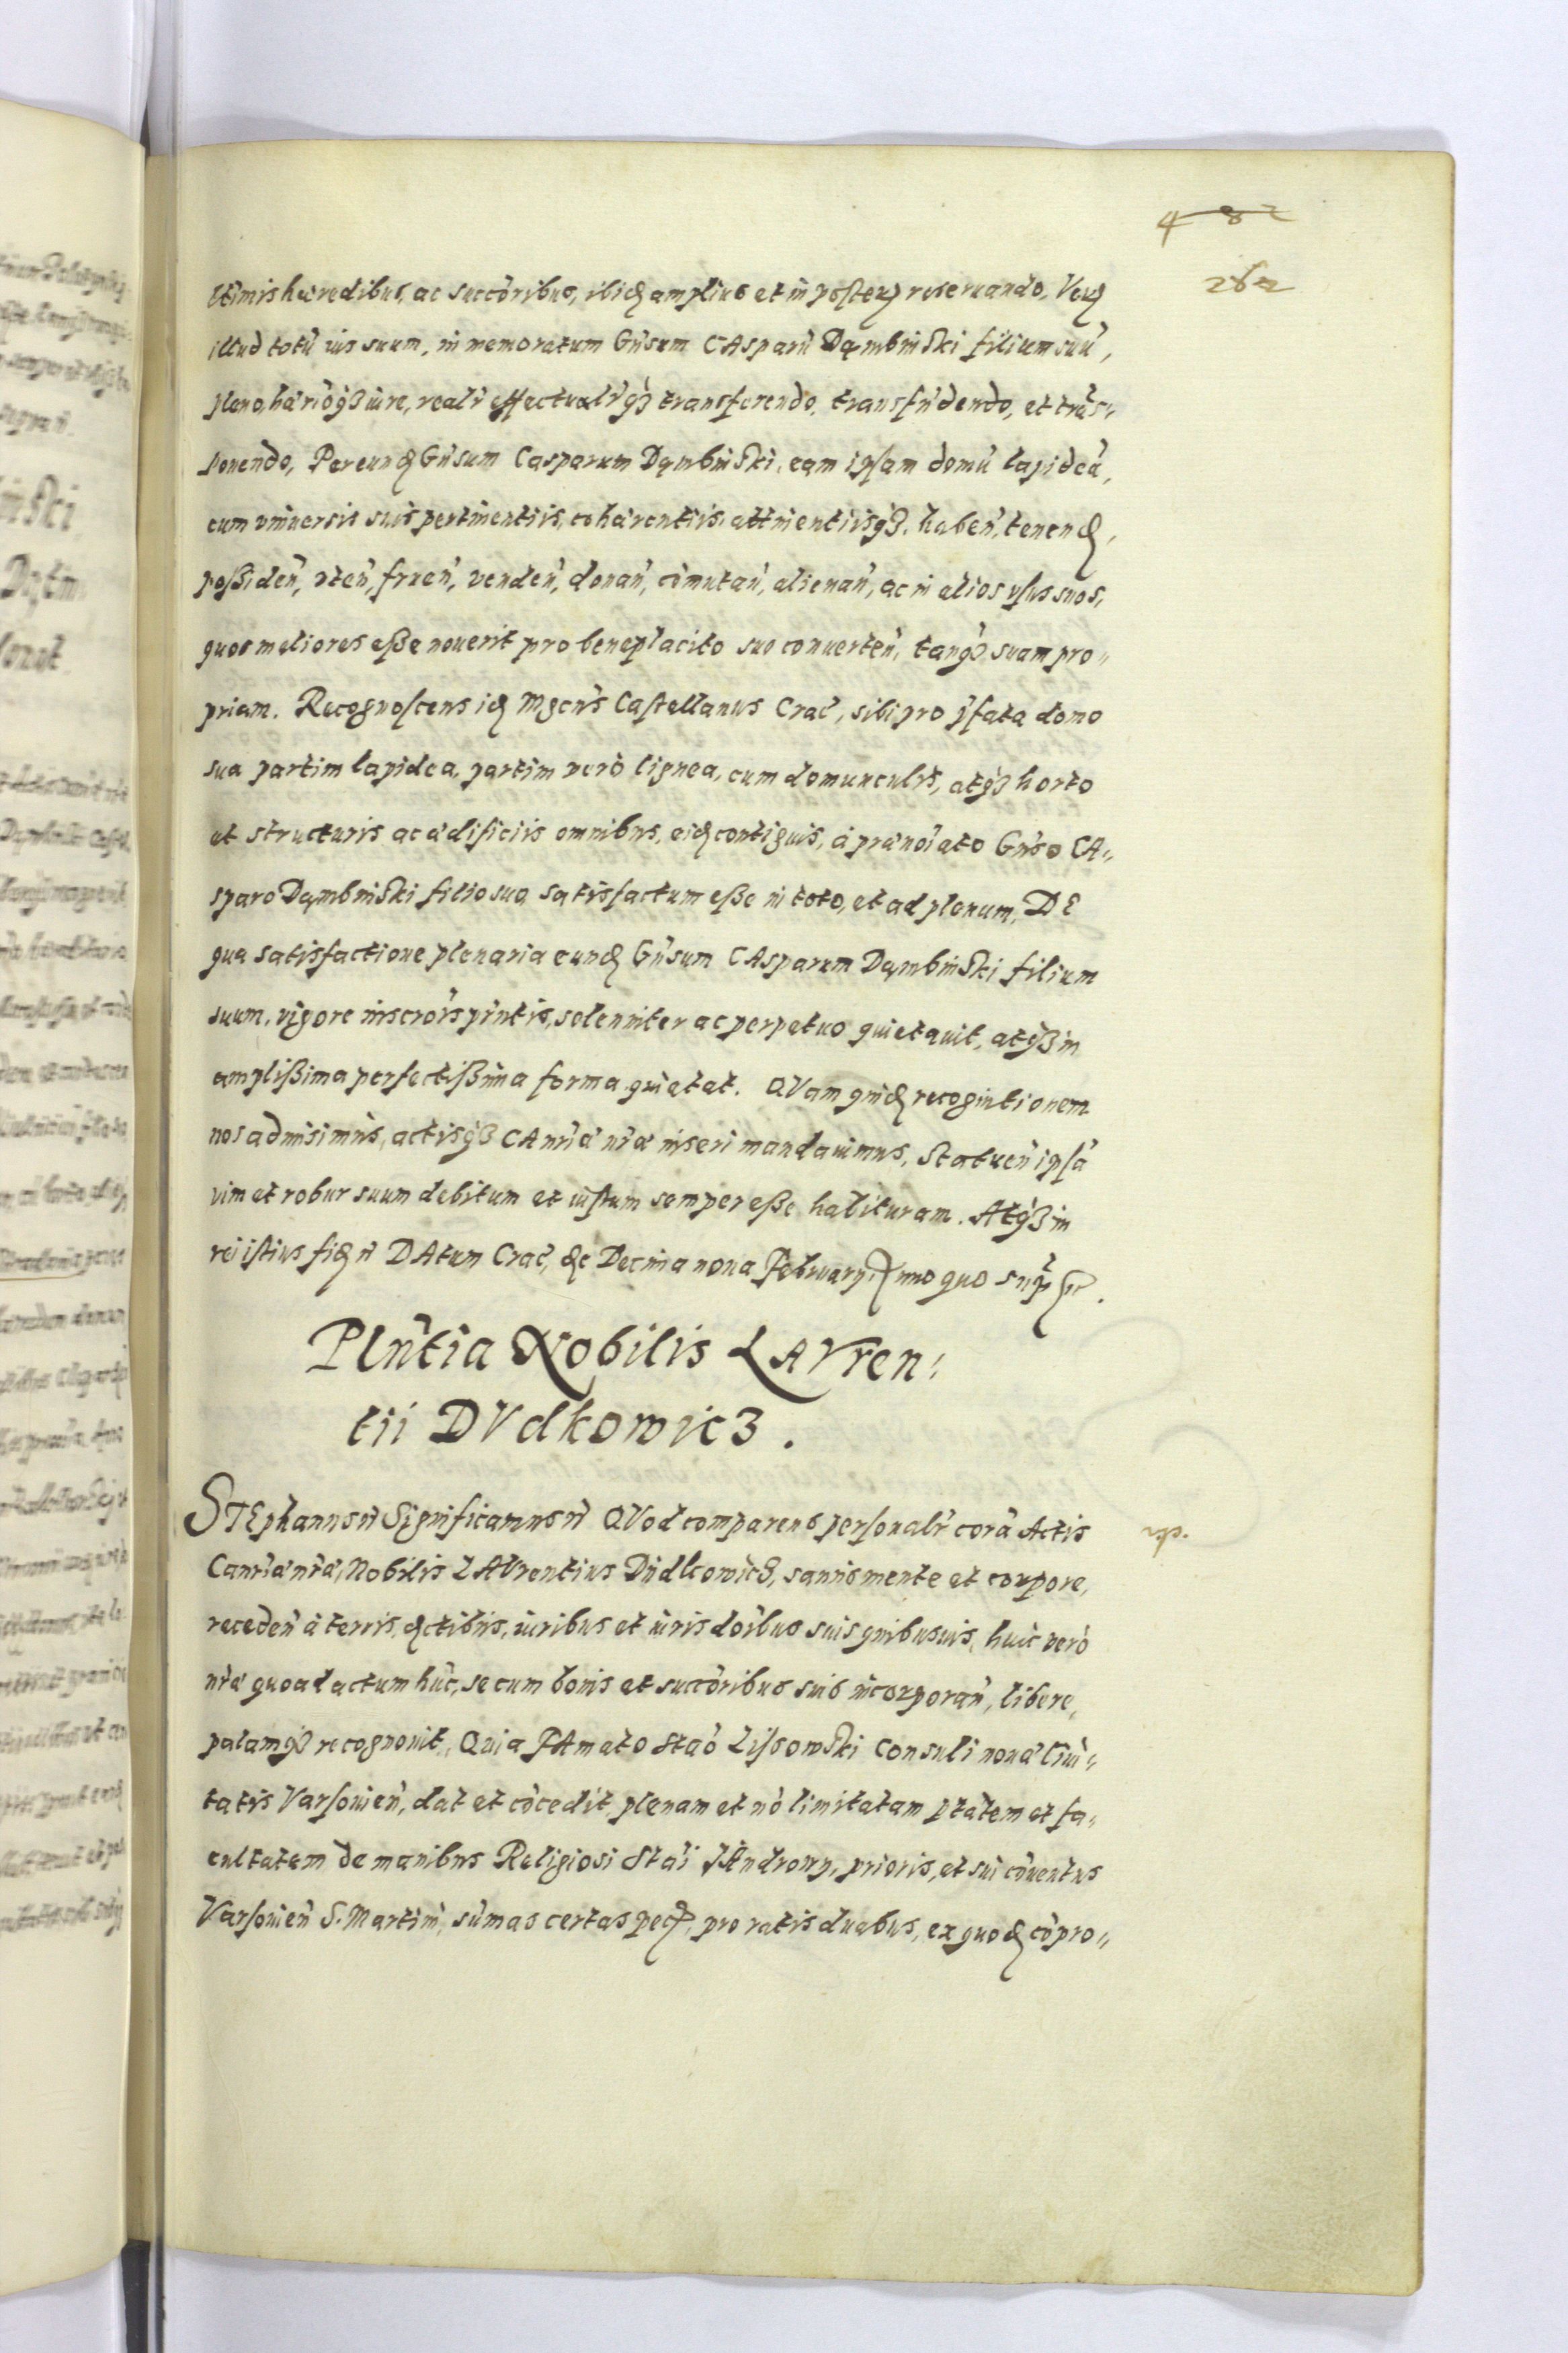 482
282
ltimis hæredibus, ac succōribus, ibidē amplius et in posterū reseruando, Verū
illud totū ius suum, in memoratum Gn̄sum CAsparū Dąmbinski filium suū,
pleno, hær̄iōq3 iure, realr̄ effectualr̄q3 transferendo, transfūdendo, et trās⸗
ponendo, Per eundē Gn̄sum Casparum Dąmbinski, eam ipsam domū lapideā,
cum vniuersis suis pertinentiis, cohærentiis, attinentiisq3, haben̄, tenendē,
possiden̄, vten̄, fruen̄, venden̄, donan̄, cōmutan̄, alienan̄, ac in alios vsus suos,
quos meliores esse nouerit pro beneplacito suo conuerten̄, tanq3 suam pro⸗
priam. Recognoscens idē Mgcūs Castellanus Crac̄, sibi pro p̄fata domo
sua partim lapidea, partim verò lignea, cum domunculis, atq3 horto
et structuris ac ædificiis omnibus, eidē contiguis, à prænoīato Gn̄so CA⸗
sparo Dąmbinski filio suo satisfactum esse in toto, et ad plenum, DE
qua satisfactione plenaria eundē Gn̄sum CAsparum Dąmbinski filium
suum, vigore inscrōis pn̄tis, solenniter ac perpetuo quietauit, atq3 in
amplissima perfectissima forma quietat. QVam quidē recognitionem
nos admisimus, actisq3 CAnr̄iæ nr̄æ inseri mandauimus, Statuen̄ ipsā
vim et robur suum debitum et iustum semper esse habituram. Atq3 in
rei istius fidē n̄ DAtum Crac̄, die Decima nona Februarij, Anno quo sup̄.
Pln̄tia Nobilis LAVren⸗
tii DVdkowic3.
STEphanus n̄ Significamus n̄ QVod comparens personalr̄ corā Actis
Canr̄iæ nr̄æ, Nobilis LAVrentius Dudkowic3, sanus mente et corpore,
receden̄ à terris, dictibus, iuribus et iurisdōibus suis quibusuis, huic verò
nr̄æ quoad actum hūc, se cum bonis et succōribus suis incorporan̄, libere,
palamq3 recognouit, Quia FAmato Staō Lissowski Consuli nouæ Ciui⸗
tatis Varsouien̄, dat et cōcedit plenam et nō limitatam p̄tatem et fa⸗
cultatem de manibus Religiosi Stāi JAndrowy, prioris, et sui cōuentus
Varsouien̄ S. Martini, sūmas certas pec̄, pro ratis duabus, ex quodē cōpro⸗